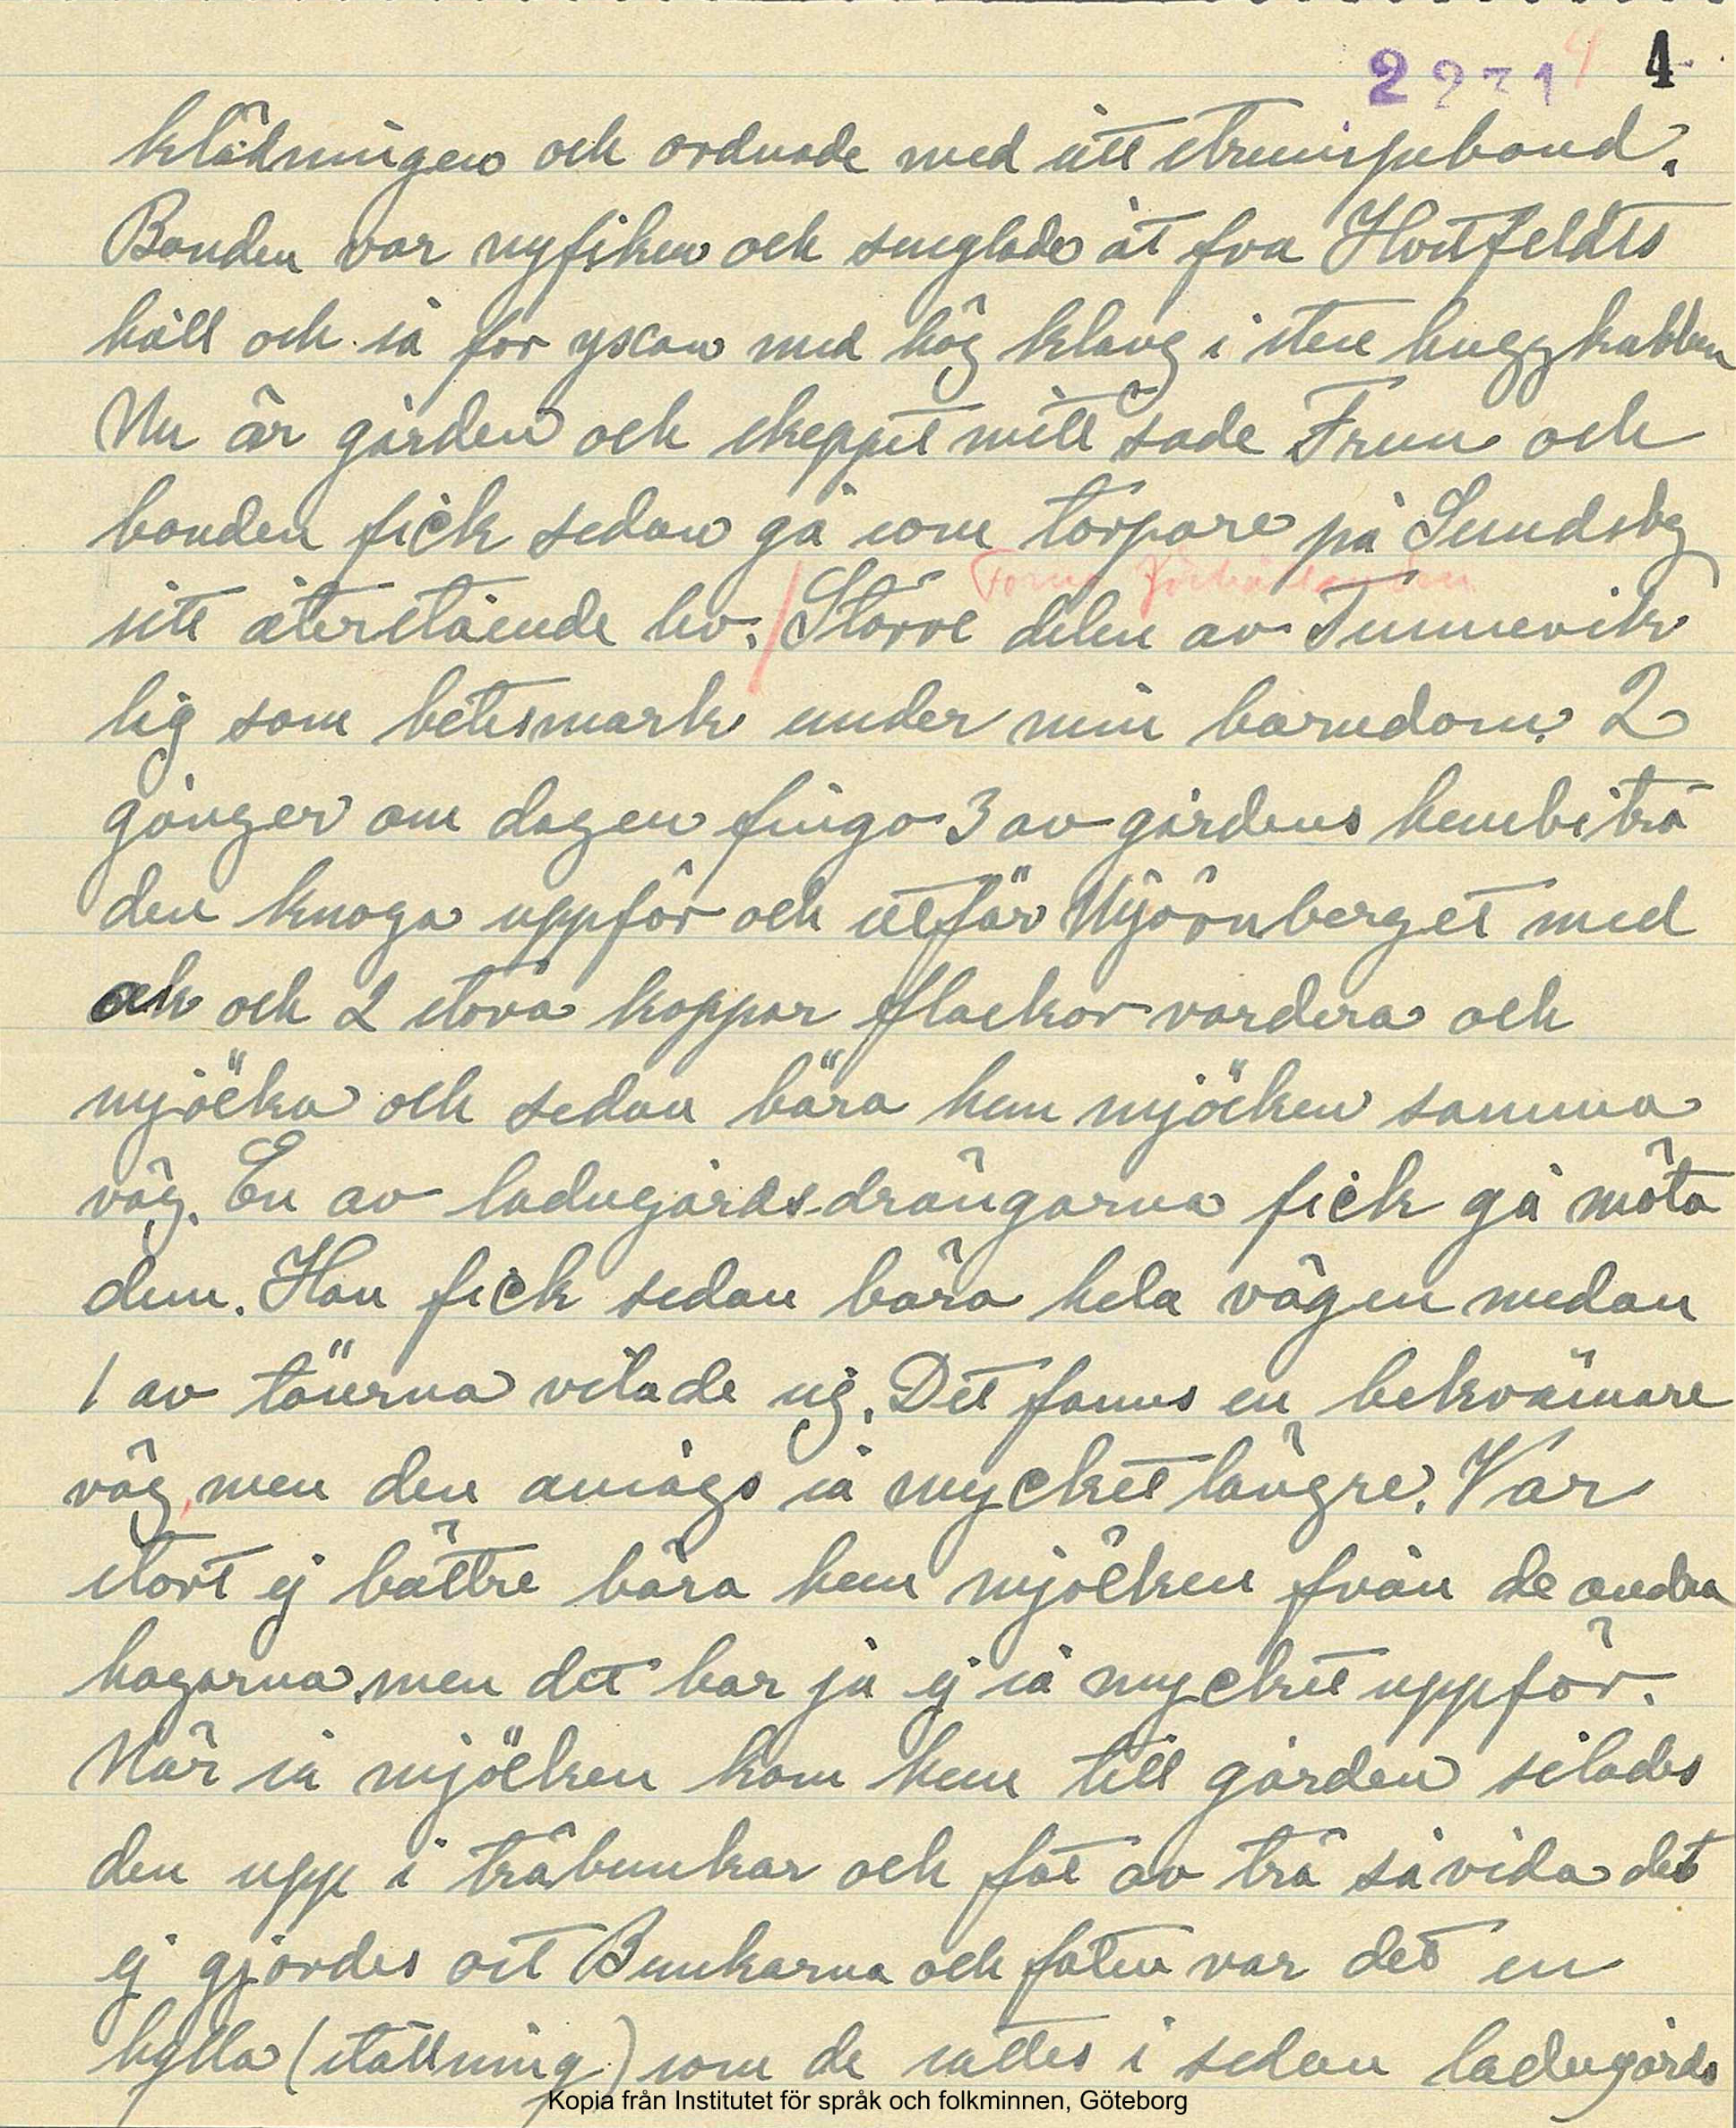 2271 4
klädningen och ordnade med sitt strumpeband.
Bonden var nyfiken och sneglade åt fru Hvitfeldts
håll och så for yxan med hög klang i sten huggkubben
Nu är gården och skeppet mitt sade Frun och
bonden fick sedan gå som torpare på Sundsby
Forna förhållanden
sitt återstående liv. / Större delen av Tunnevik
låg som betesmark under min barndom. 2
gånger om dagen fingo 3 av gårdens hembiträ
den knoga uppför och utför Mjörnberget med
ok och 2 stora koppar flaskor vardera och
mjölka och sedan bära hem mjölken samma
väg. En av ladugårdsdrängarna fick gå möta
dem. Han fick sedan bära hela vägen medan
1 av töserna vilade sig. Det fanns en bekvämare
väg, men den ansågs så mycket längre. Var
stort ej bättre bära hem mjölken från de andra
hagarna men det bar ju ej så mycket uppför.
När så mjölken kom hem till gården silades
den upp i träbunkar och fat av trä såvida det
ej gjordes ost Bunkarna och faten var det en
hylla (ställning) som de sattes i sedan ladugårds
Kopia från Institutet för språk och folkminnen, Göteborg